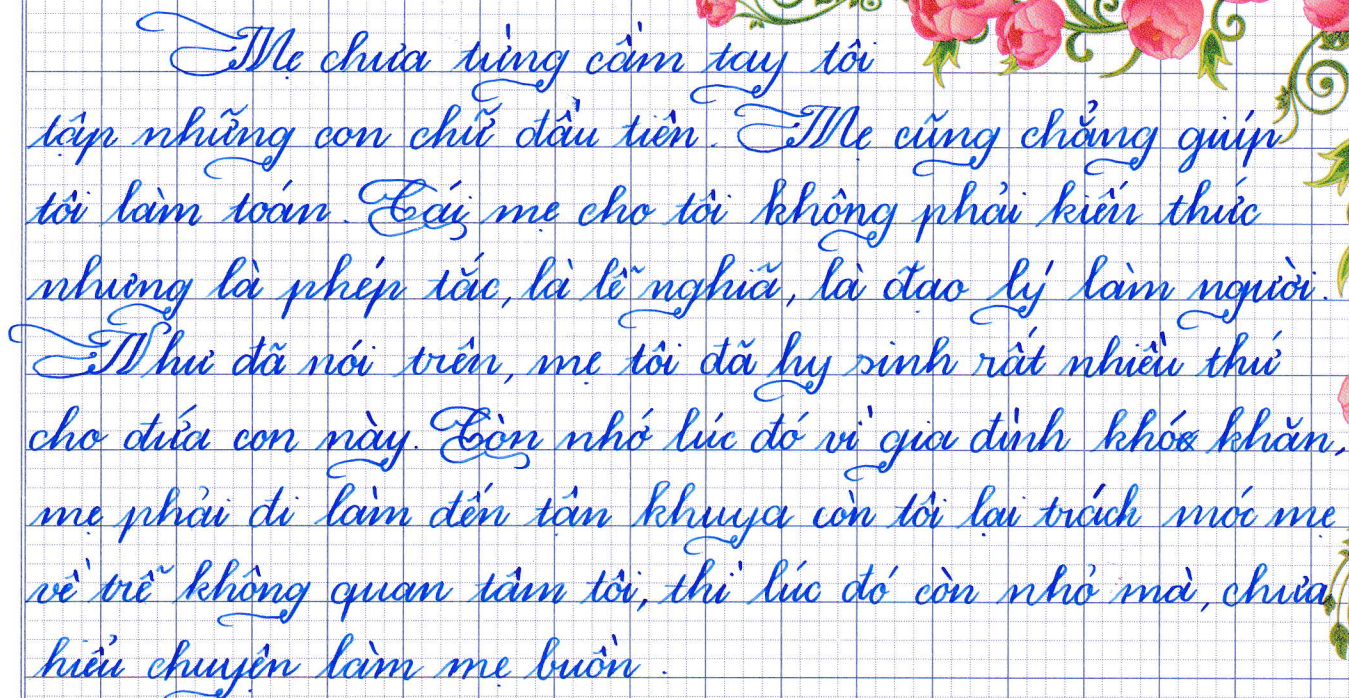 Mẹ chưa từng cầm tay tôi
tập những con chữ đầu tiên. Mẹ cũng chẳng giúp
tôi làm toán. Cái mẹ cho tôi không phải kiến thức
nhưng là phép tắc, là lễ nghĩa, là đạo lý làm người.
Như đã nói trên, mẹ tôi đã hy sinh rất nhiều thứ
cho đứa con này. Còn nhớ lúc đó vì gia đình khó khăn,
mẹ phải đi làm đến tận khuya còn tôi lại trách móc mẹ
về trễ không quan tâm tôi, thì lúc đó còn nhỏ mà, chưa
hiểu chuyện làm mẹ buồn.